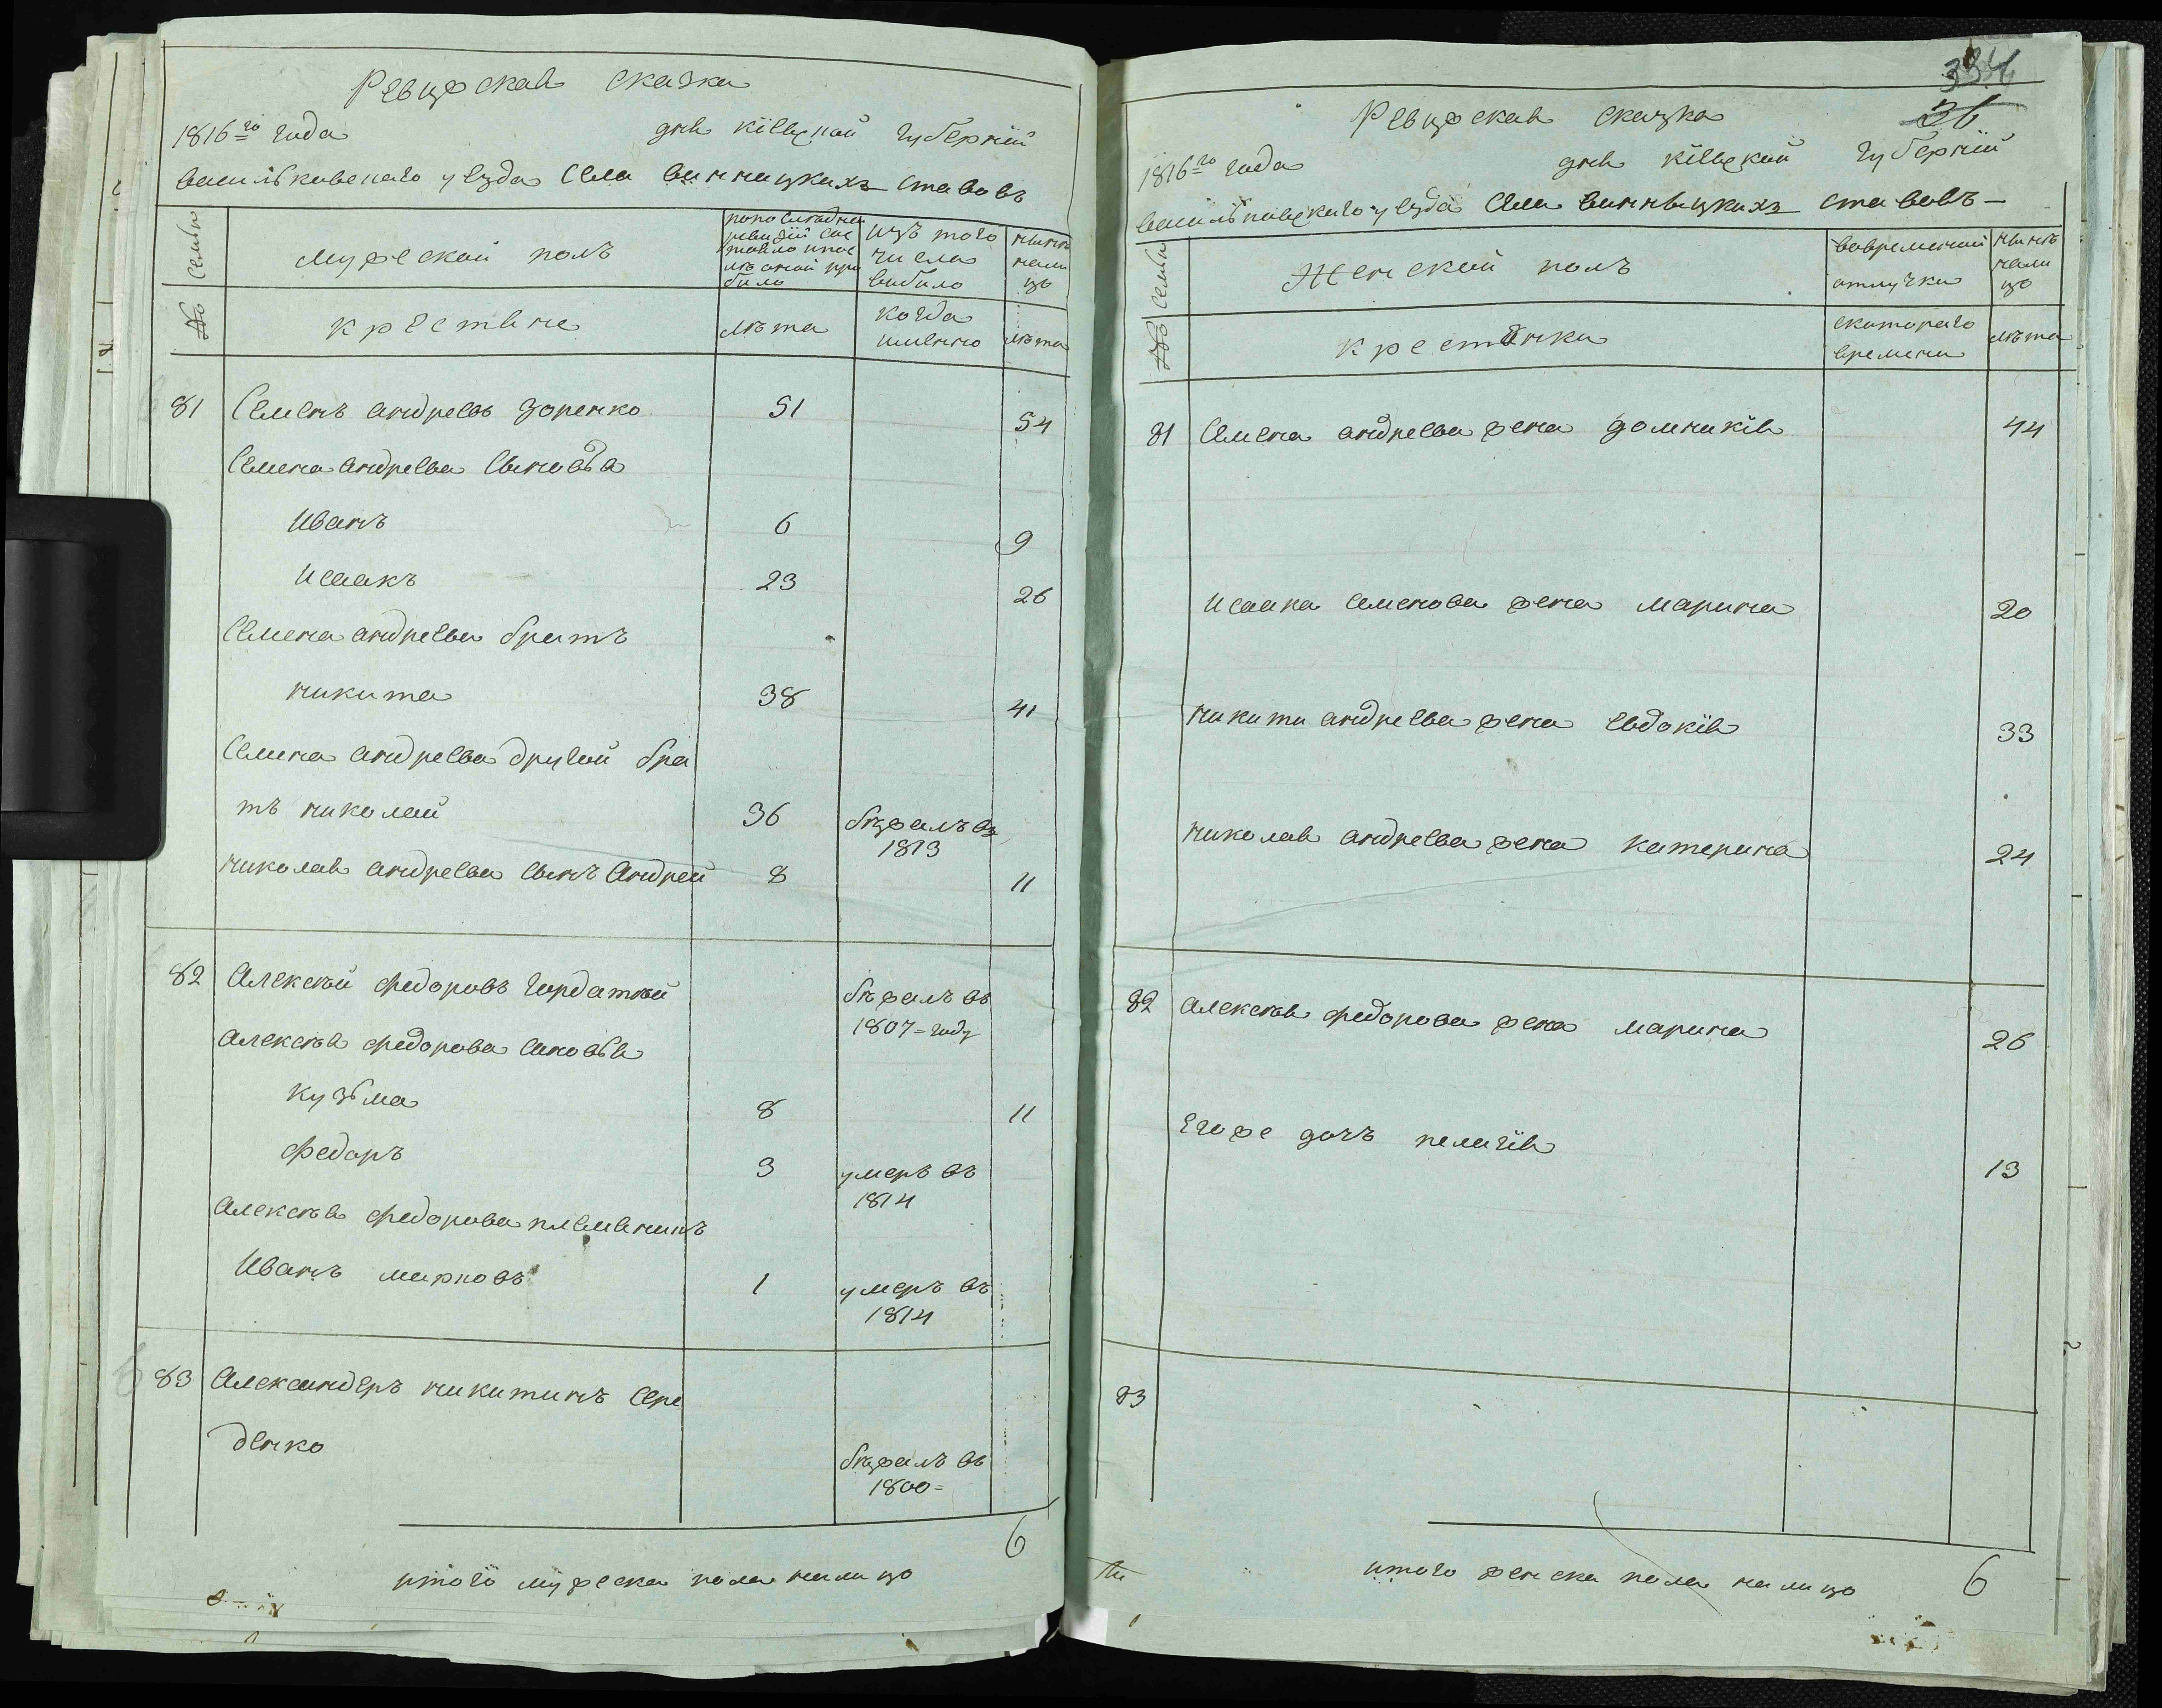 Ревизская сказка
1816го года дня кіевской губерніи
васильковского уезда села винницкихъ ставовъ
Семьи
мужеской полъ
изъ того числа выбыло
ныне на лицо
№
крестьяне
лѣта
когда именно
лѣта
81 Семенъ андреевъ зоренко 51 54
Семена андреева сыновья
Иванъ 6 9
Исаакъ 23 26
Семена андреева братъ
никита 38 41
Семена андреева другой бра
тъ николай 36 бѣжалъ въ 1813
николая андреева сынъ Андрей 8 11
82 Алексѣй федоровъ бѣжалъ въ 1807= году
Алексѣя федорова сыновья
кузьма 8 11
Федоръ 3 умеръ въ 1814
Алексѣя федорова племянникъ
Иванъ марковъ 1 умеръ въ 1814
83 Александеръ никитинъ Сере
денко бѣжалъ въ 1800=
6
итого мужеска пола налицо
334
36
Ревизская сказка
1816го года дня кіевской губерніи
васильковского уезда Села винницкихъ ставовъ
Семьи
Женской полъ
вовременной отлучки
ныне на лицо
№
крестянки
скоторого времени
лѣта
81 Семена андреева жена домникія 44
Исаака семенова жена марина 20
никиты андреева жена евдокія 33
николая андреева жена катерина 24
82 Алексѣя федорова жена марина 26
Егоже дочь пелагія 13
83
итого женска пола налицо 6